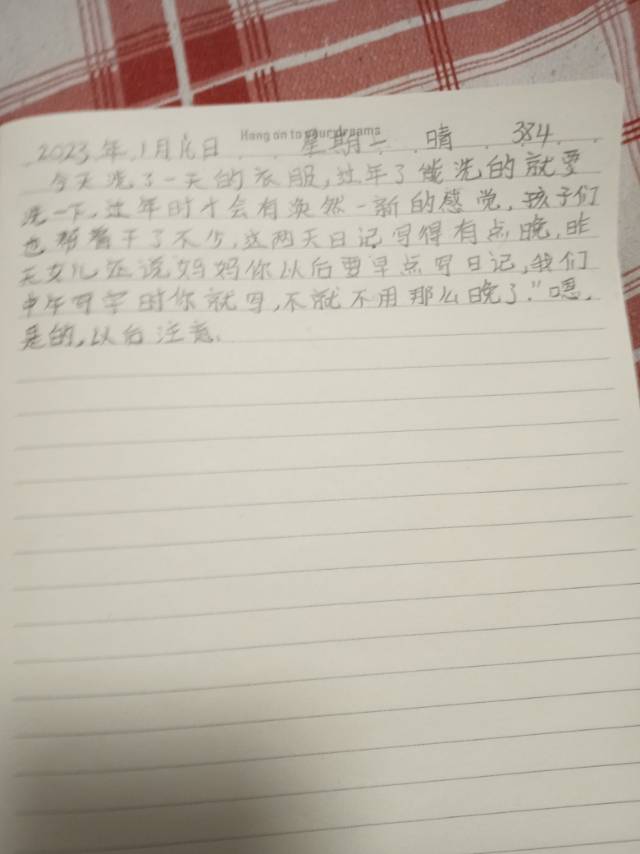 Hang on to your dreams
2023年1月 日 星期二 晴 384
今天洗了一天的衣服,过年了能洗的就要
洗一下,过年时才会有焕然一新的感觉,孩子们
也帮着干了不少,这两天日记写得有点晚,昨
天女儿还说妈妈你以后要早点写日记,我们
中午写字时你就写,不就不用那么晚了."嗯,
是的,以后注意.